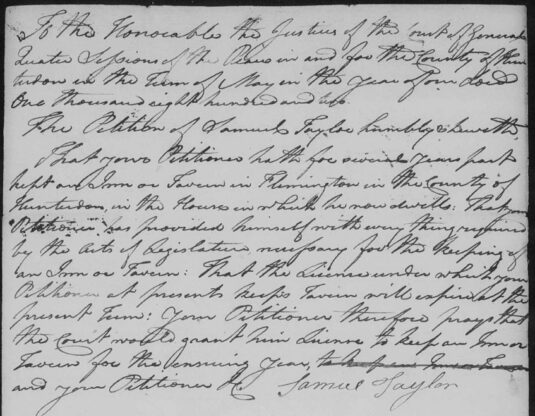 To the Honorable the Justices of the Court of General
Quater Sessions of the Peace in and for the County of Hun
terdon in the Term of May in the year of our Lord
One thousand eight hundred and six
The Petition of Samuel Taylor humbly sheweth
That your Petitioner hath for several years past
kept an Inn or Tavern in Flemington in the County of
Hunterdon, in the House in which he now dwells: That your
Petitioner has provided himself with every thing required
by the acts of Legislature necessary for the keeping of
an Inn or Tavern: That the License under which your
Petitioner at presents keeps Tavern will expire at the
present Term: your Petitioner therefore prays that
the Court would grant him License to keep an Inn or
Tavern for the ensuing year, to keep an Inn or Tavern
and your Petitioner &c. Samuel Taylor